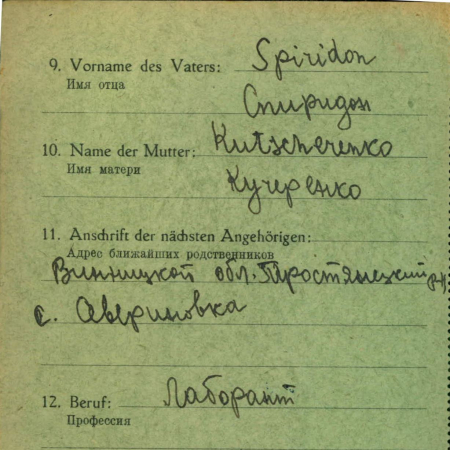 9. Vorname des Vaters: Spiridon
Имя отца
Спиридон
10. Name der Mutter: Kutscherenko
Имя матери
Кучеренко
11. Anschrift der nächsten Angehörigen:
Адрес ближайших родственников
Винницкой обл. Тростянецкий р-н
с. Авериновка
12. Beruf: Лаборант
Профессия